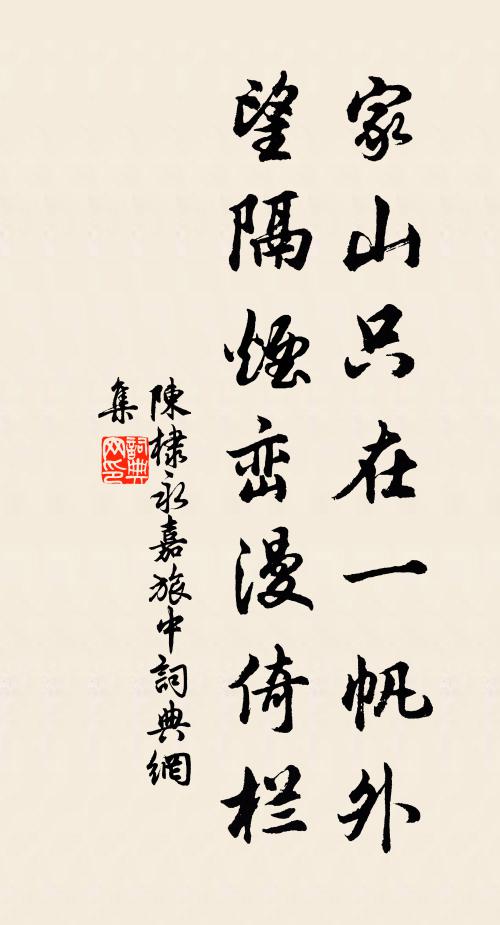 家山只在一帆外
望隔煙峦漫倚栏
陳棣永嘉旅中詞典網
集
詞典網印